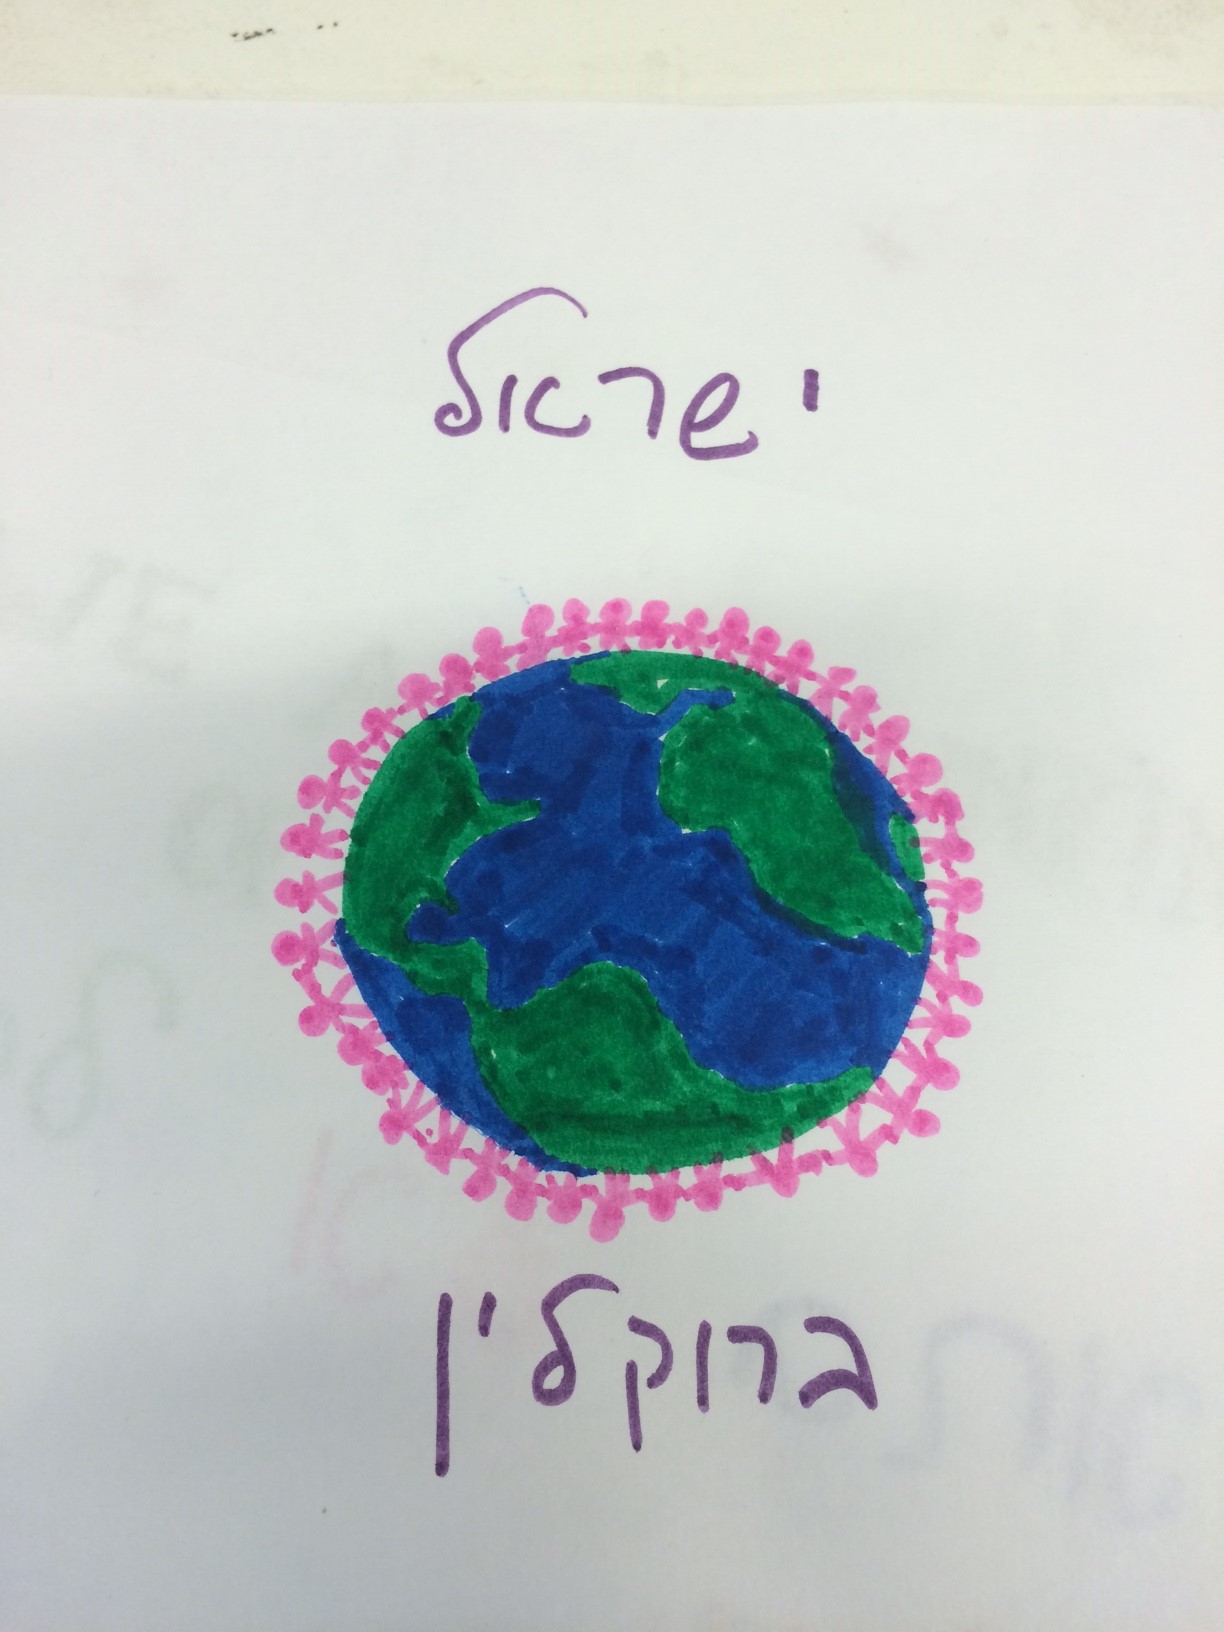 ישראל
ברוקלין